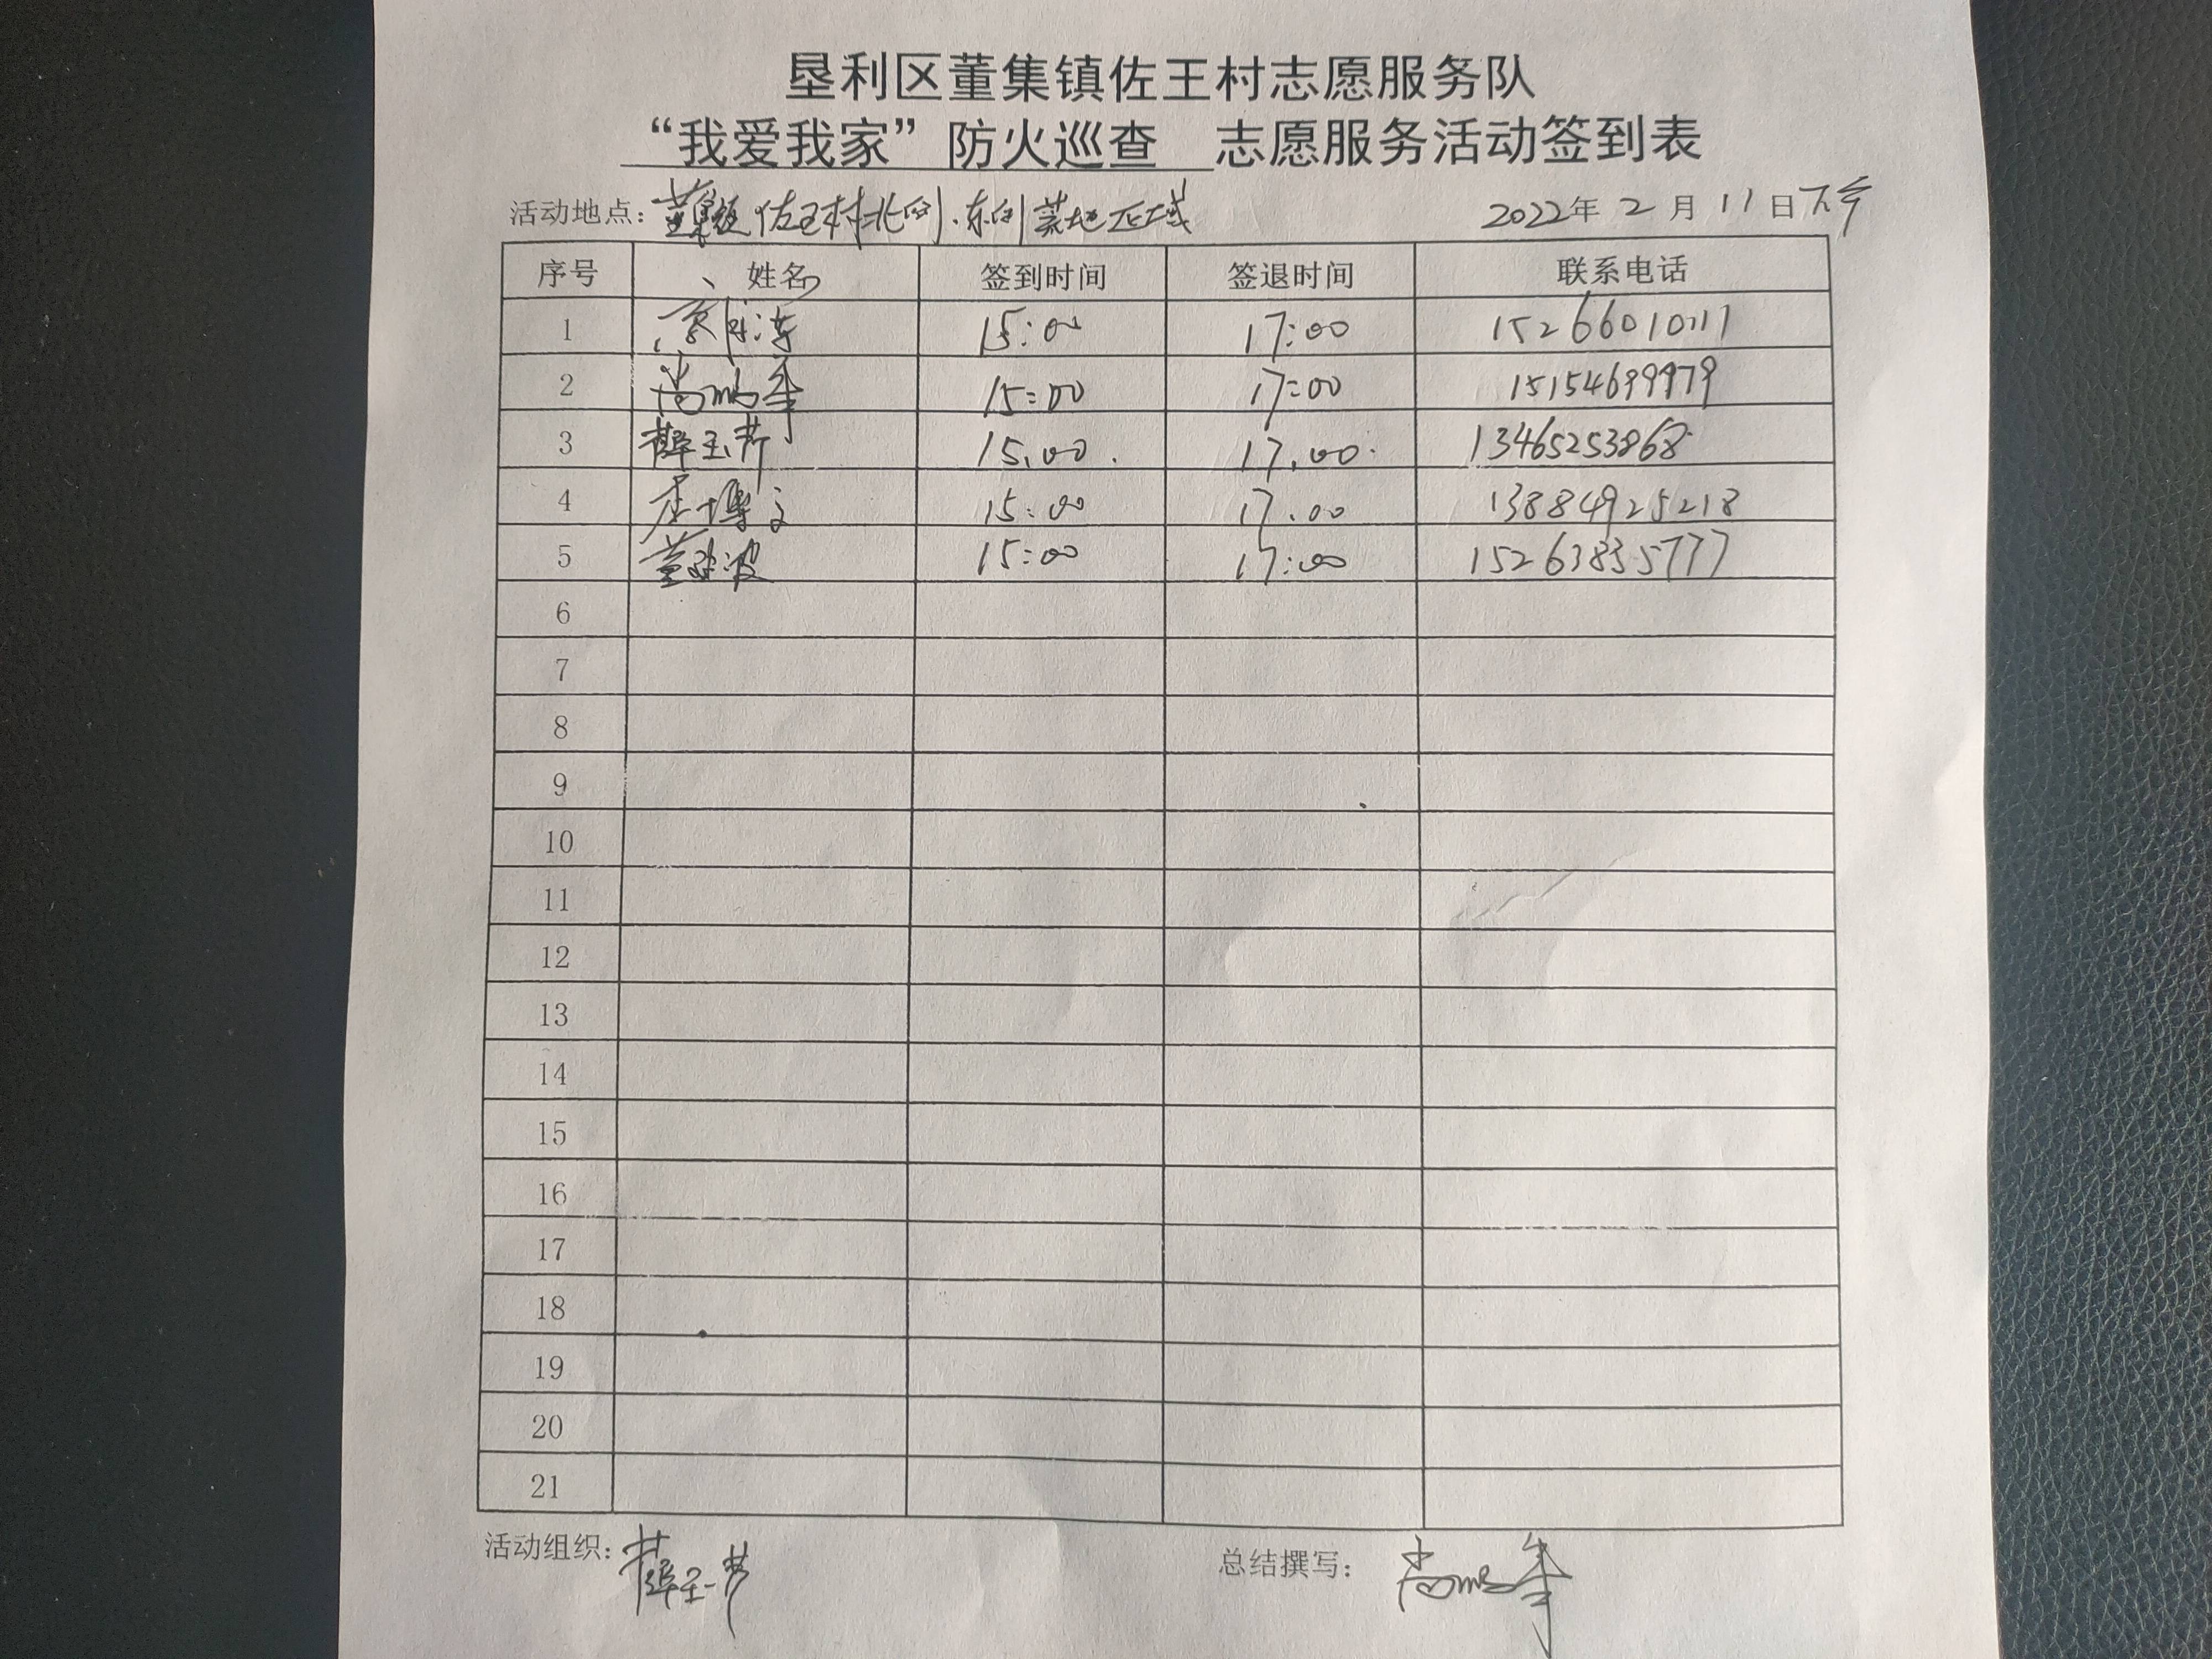 垦利区董集镇佐王村志愿服务队
“我爱我家”防火巡查 志愿服务活动签到表
活动地点：董集镇佐王村北侧、东侧荒地区域 2022年2月11日下午
序号 姓名 签到时间 签退时间 联系电话
1 15:00 17:00
2 尚鹏 15:00 17:00 15154699979
3 薛玉芹 15.00. 17.00. 13465253868
4 博文 15:00 17.00 13884925218
5 董 波 15:00 17:00 15263835777
6
7
8
9
10
11
12
13
14
15
16
17
18
19
20
21
活动组织：薛玉芹 总结撰写：尚鹏